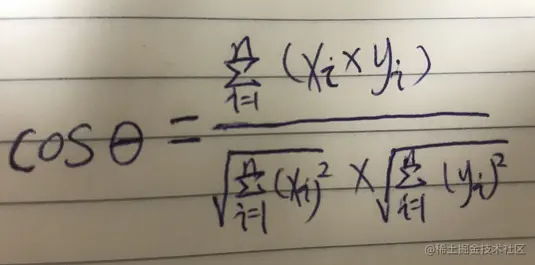 cosθ = \frac{\sum_{i=1}^{n} (x_i × y_i)}{\sqrt{\sum_{i=1}^{n} (x_i)^2} × \sqrt{\sum_{i=1}^{n} (y_i)^2}}
@稀土掘金技术社区